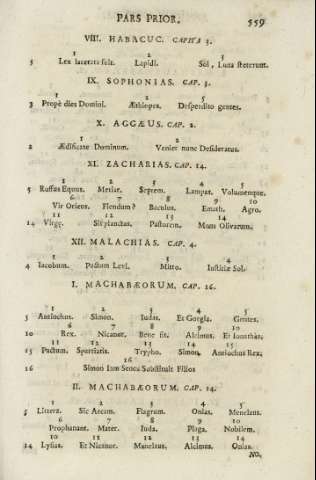 PARS PRIOR. 559
VIII. HABACUC. CAPITA 3.
1 2 3
3 Lex lacerata fuit. Lapidi. Sol, Luna steterunt.
IX. SOPHONIAS. CAP. 3.
1 2 3
3 Propè dies Domini. Æthiopes. Despondito gentes.
X. AGGÆUS. CAP. 2.
1 2
2 Ædificate Dominum. Veniet nunc Desideratus.
XI. ZACHARIAS. CAP. 14.
1 2 3 4 5
5 Ruffus Equus. Metiar. Septem. Lampas. Volumenque.
6 7 8 9 10
Vir Oriens. Flendum? Baculus. Emath. Agro.
11 12 13 14
14 Virgę. Si planctus. Pastorem. Mons Olivarum.
XII. MALACHIAS. CAP. 4.
1 2 3 4
4 Iacobum. Pactum Levi. Mitto. Iustitiæ Sol.
I. MACHABÆORUM. CAP. 16.
1 2 3 4 5
5 Antiochus. Simon. Iudas. Et Gorgia. Gentes.
6 7 8 9 10
10 Rex. Nicanor. Bene fit. Alcimus. Et Ionathas;
11 12 13 14 15
15 Pactum. Spartiatis. Trypho. Simon, Antiochus Rex;
16
16 Simon iam Senex Substituit Filios
II. MACHABÆORUM. CAP. 14.
1 2 3 4 5
5 Littera. Sic Arcam. Flagrum. Onias. Menelaus.
6 7 8 9 10
Prophanant. Mater. Iuda. Plaga. Nobilem.
10 11 12 13 14
14 Lysias. Et Nicanor. Manelaus. Alcimus. Onias.
NO,